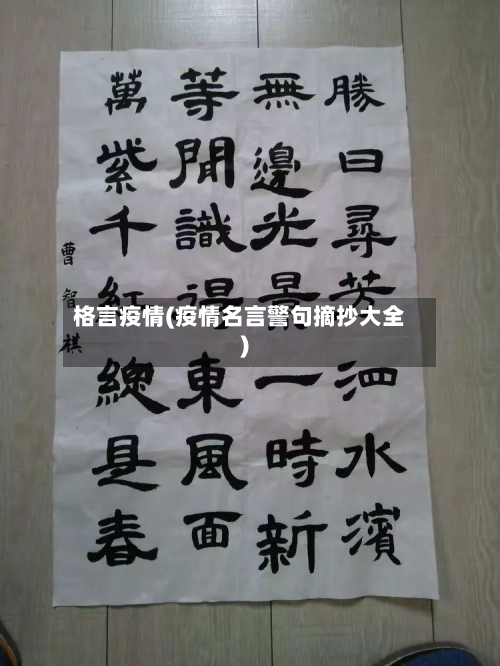 勝日尋芳泗水濱
無邊光景一時新
等閒識得東風面
萬紫千紅總是春
曹智祺
格言疫情(疫情名言警句摘抄大全
)